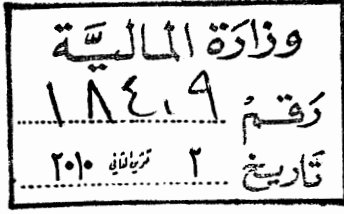 وزارَة الماليَّة
رَقمُ ١٨٤٠٩
تَاريخ ٢ تشرين الثاني ٢٠١٠